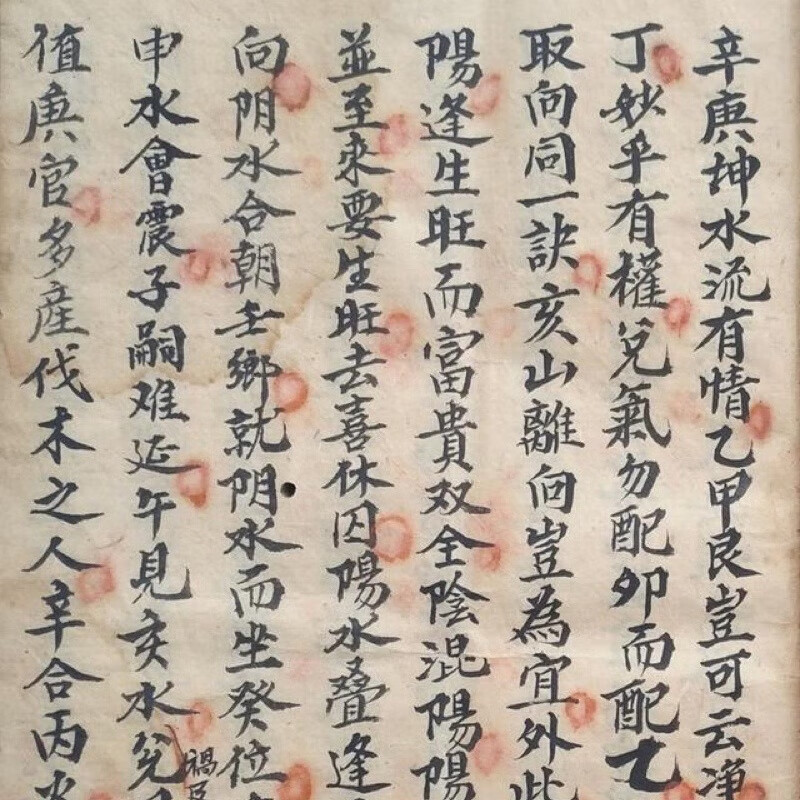 辛庚坤水流有情乙甲艮豈可云净
丁妙乎有權兌氣勿配卯而配乙
取向同一訣亥山離向豈為宜外此
陽逢生旺而富貴双全陰混陽陽
並至來要生旺去喜休囚陽水疊逢
向阴水合朝壬鄉就阴水而坐癸位
申水會震子嗣难延午見亥水兌
禍
值庚官多產伐木之人辛合丙